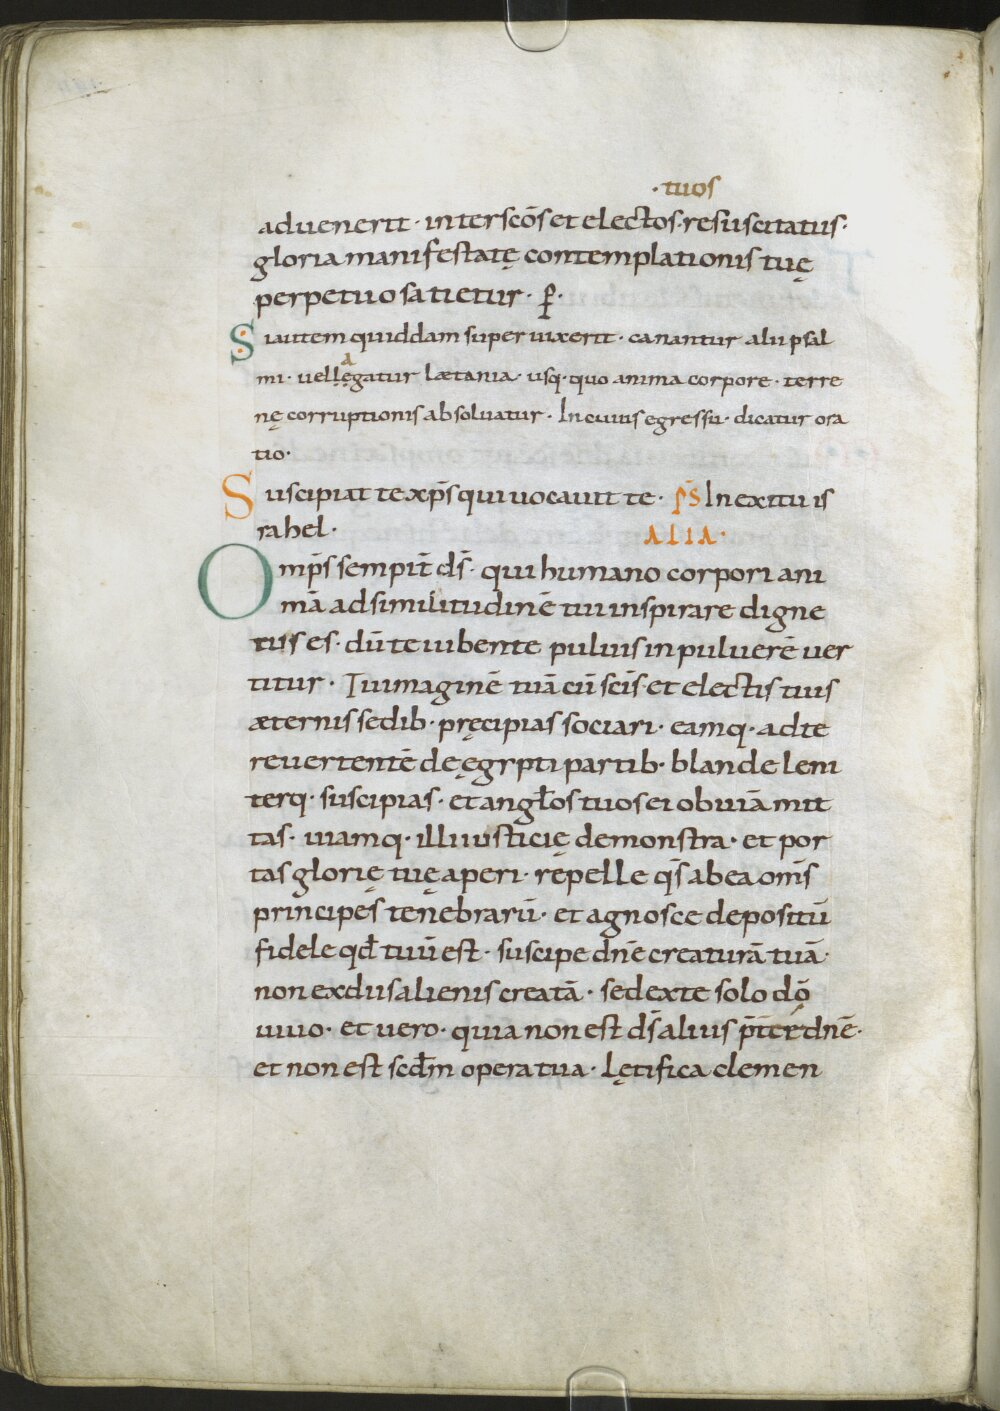 · tuos
aduenerit · inter sc̄os et electos · resuscitatus ·
gloria manifestatę contemplationis tuę
perpetuo satietur · ꝑ ·
Si autem quiddam superuixerit · canantur alii psal
a
mi · uel lęgatur lætania · usq · quo anima corpore · terre
nę corruptionis absoluatur · In cuius egressu · dicatur ora
tio ·
Suscipiat te xp̄s qui uocauit te · p̄s In exitu is
rahel · ALIA ·
Omp̄s sempit̄ ds̄ · qui humano corpori ani
mā ad similitudinē tui inspirare digne
tus es · dū te iubente puluis in puluerē uer
titur · Tu imaginē tuā cū sc̄is et electis tuis
æternis sedib · pręcipias sociari · eamq · ad te
reuertentē de ęgypti partib · blande leni
terq · suscipias · et angl̄os tuos ei obuiā mit
tas · uiamq · illi iusticię demonstra · et por
tas glorię tuę aperi · repelle qs̄ ab ea om̄s
principes tenebrarū · et agnosce depositū
fidele qd̄ tuū est · suscipe dn̄e creaturā tuā ·
non ex diis alienis creatā · sed ex te solo dō
uiuo · et uero · quia non est ds̄ alius p̄ter dn̄e ·
et non est scd̄m opera tua · Lętifica clemen